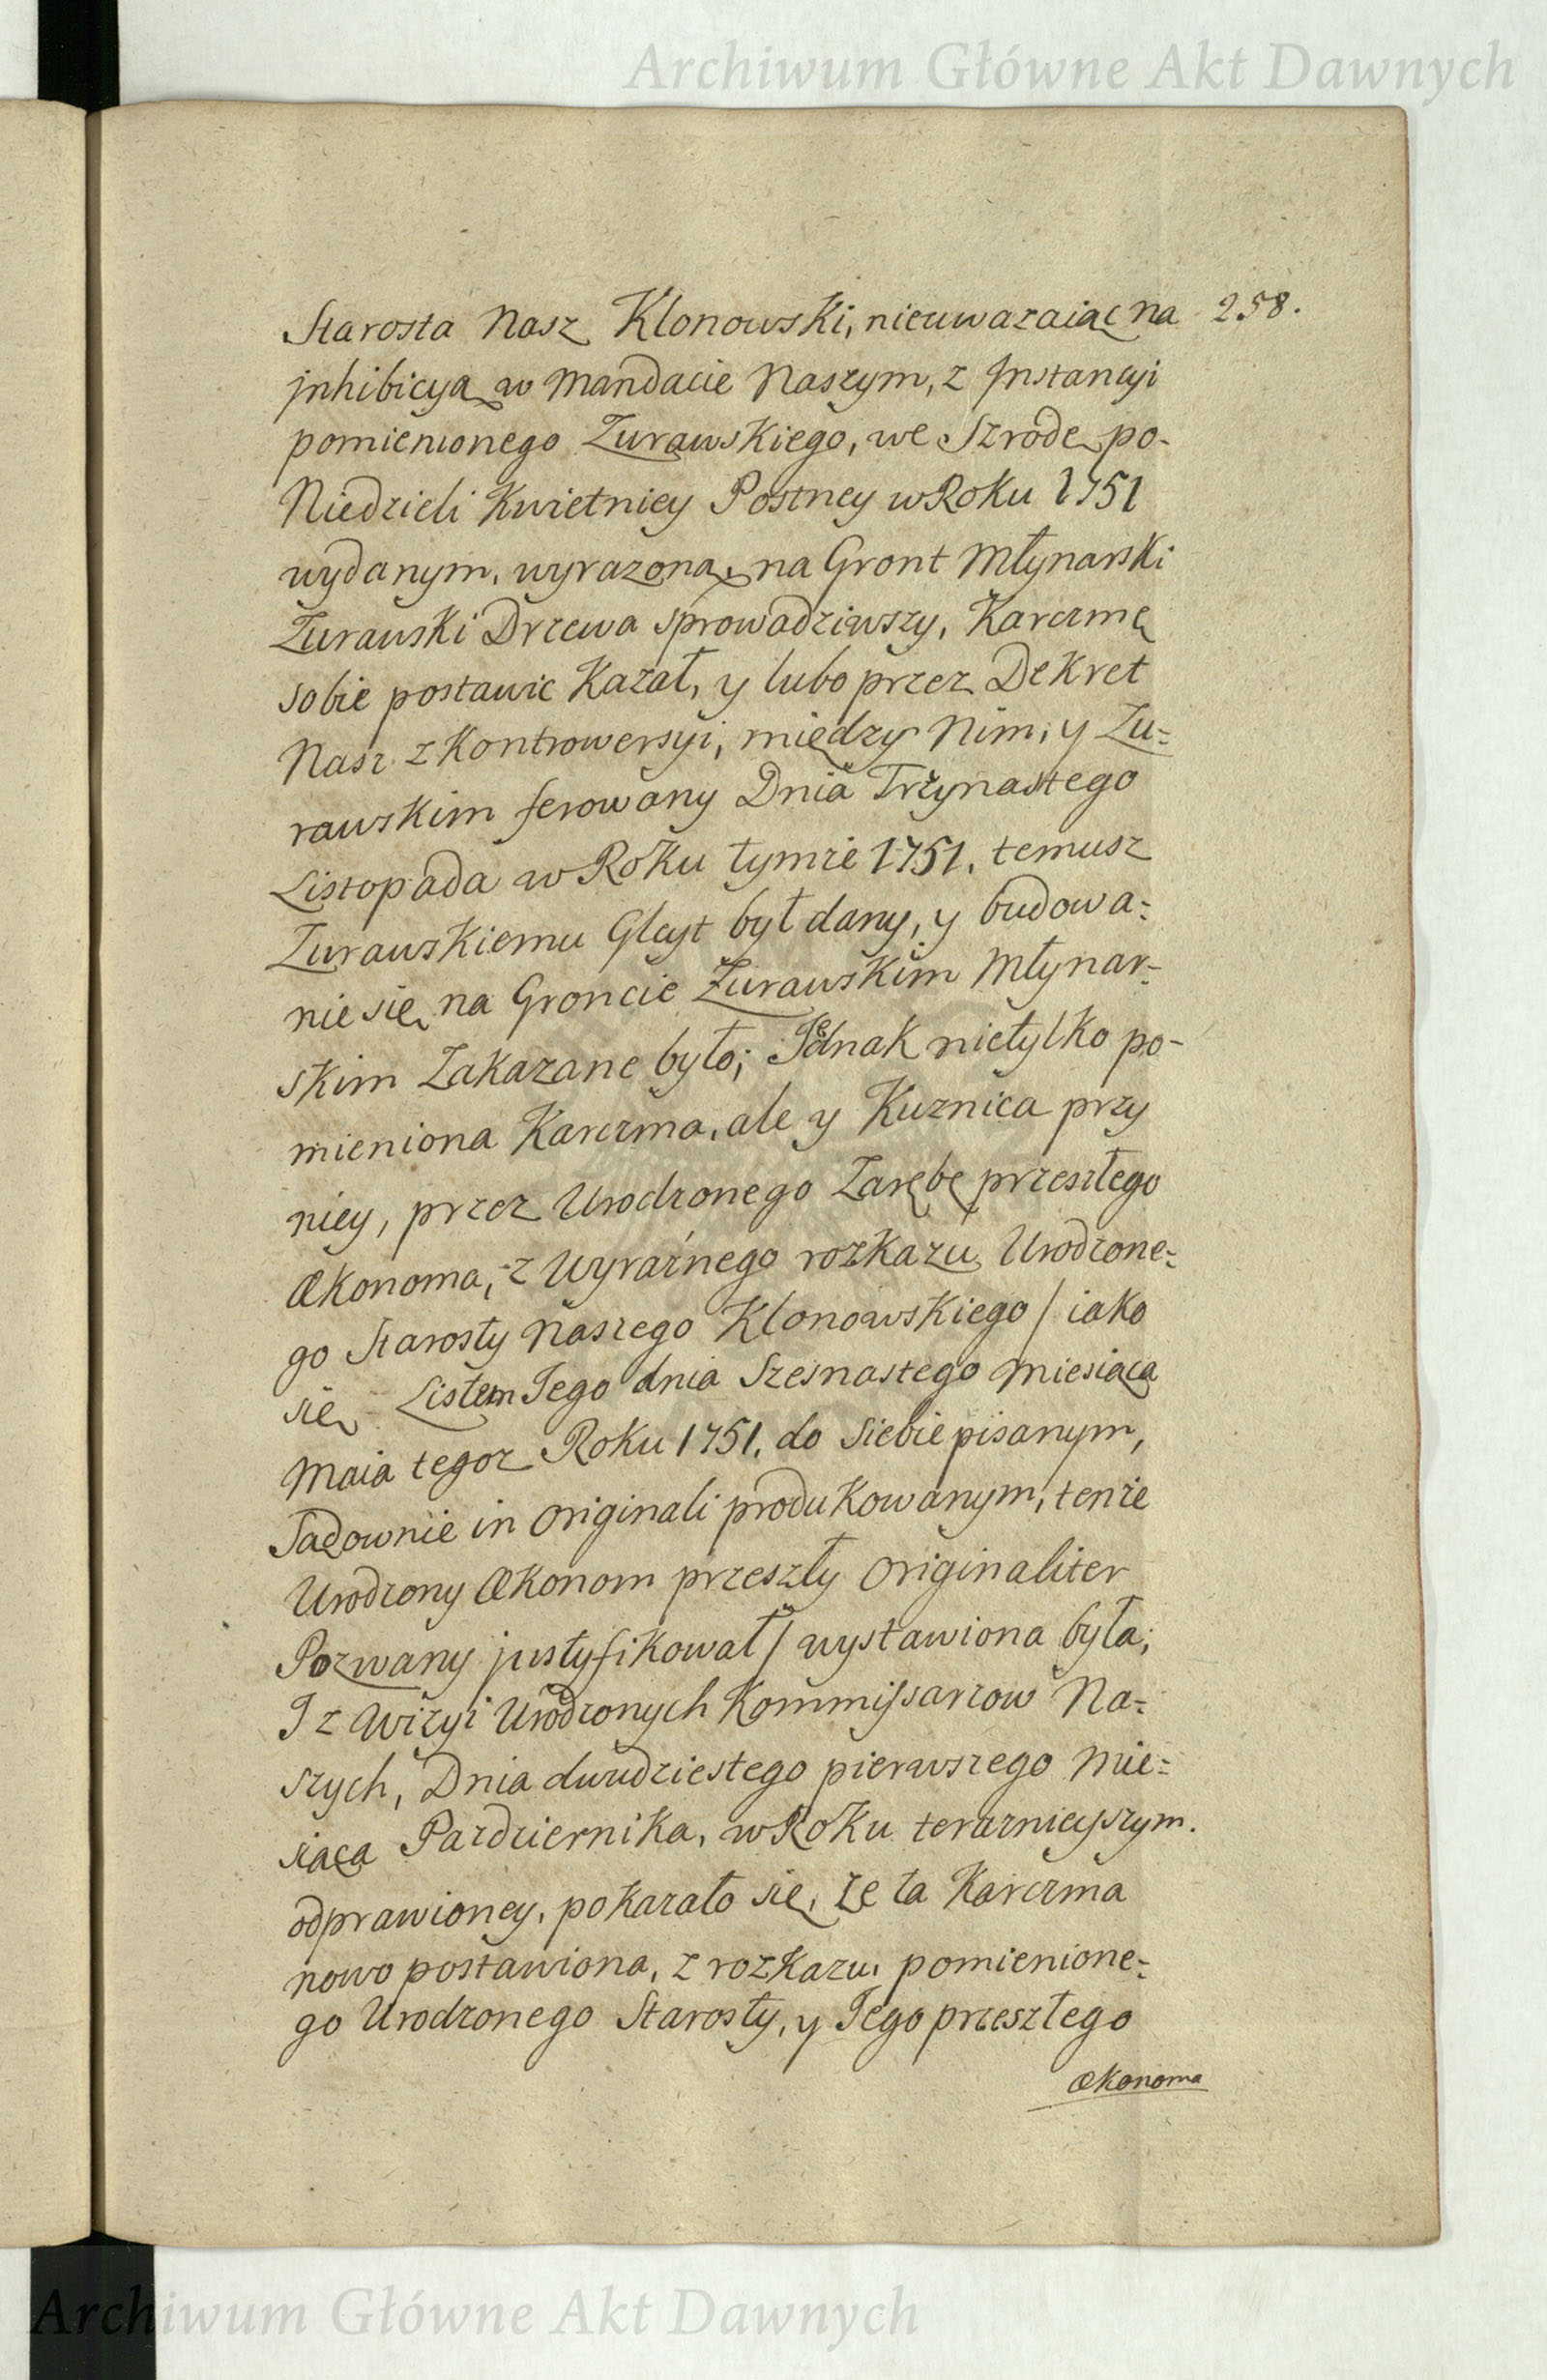 Archiwum Główne Akt Dawnych
258.
Starosta Nasz Klonowski, nieuwazaiąc na
jnhibicyą w Mandacie Naszym, z Jnstancyi
pomienionego Zurawskiego, we Szrodę po-
Niedzieli Kwietniey Postney w Roku 1751
wydanym, wyrazoną, na Gront Młynarski
Zurawski Drzewa sprowadziwszy, Karczmę
sobie postawic Kazał, y lubo przez Dekret
Nasz z Kontrowersyi, między Nim, y Zu=
rawskim ferowany Dnia Trzynastego
Listopada w Roku tymze 1751. temusz
Zurawskiemu Gleyt był dany, y budowa=
nie się na Groncie Zurawskim Młynar-
skim Zakazane było; Jednak nietylko po-
mieniona Karczma, ale y Kuznica przy
niey, przez Urodzonego Zarębę przeszłego
Œkonoma, z Wyraźnego rozkazu Urodzone=
go Starosty Naszego Klonowskiego / iako
się Listem Jego dnia Szesnastego Miesiąca
Maia tegoz Roku 1751. do Siebie pisanym,
Sądownie in Originali produkowanym, tenze
Urodzony Œkonom przeszły Originaliter
Pozwany justyfikował / wystawiona była;
J z Wizyi Urodzonych Kommissarzow Na=
szych, Dnia dwudziestego pierwszego Mie=
siąca Pazdziernika, w Roku terazniejszym.
odprawioney, pokazało się, ze ta Karczma
nowo postawiona, z rozkazu pomienione=
go Urodzonego Starosty, y Jego przeszłego
Œkonoma
Archiwum Główne Akt Dawnych